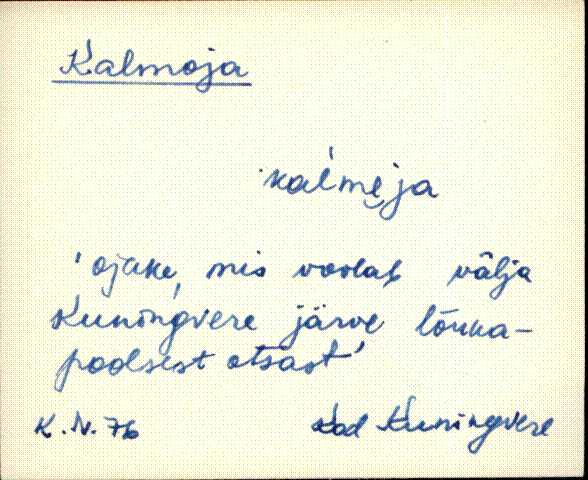 Kalmoja
kaĺmẹja
'ojake, mis voolab välja
Kuningvere järve lõuna-
poolsest otsast'
K. N. 76
Kod Kuningvere